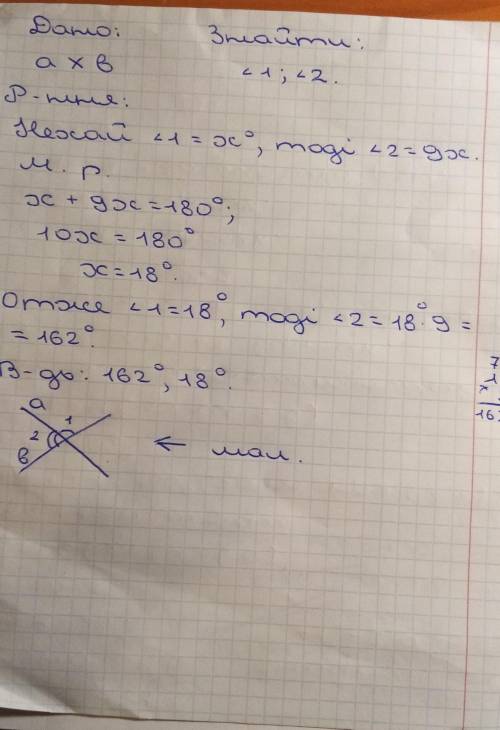 Дано: Знайти:
a x b ∠1; ∠2.
Р-ння:
Нехай ∠1 = x°, тоді ∠2 = 9x.
М. р.
x + 9x = 180°;
10x = 180°
x = 18°.
Отже ∠1 = 18°, тоді ∠2 = 18°·9 =
= 162°.
В-дь: 162°, 18°.
a
1
2
b
← мал.
7
1
x
16